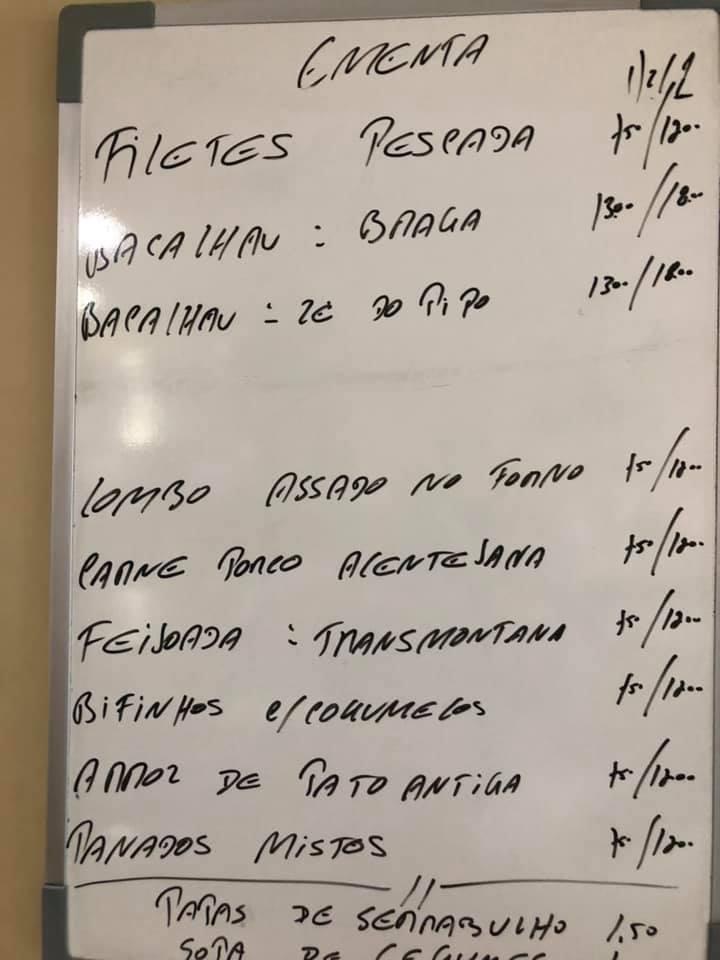 EMENTA
1/2 / 1
FILETES PESCADA 750/1200
BACALHAU : BRAGA 1300/1800
BACALHAU : ZE DO PIPO 1300/1800
LOMBO ASSADO NO FORNO 750/1200
CARNE PORCO ALENTEJANA 750/1200
FEIJOADA : TRANSMONTANA 750/1200
BIFINHOS C/COGUMELOS 750/1200
ARROZ DE PATO ANTIGA 750/1200
PANADOS MISTOS 750/1200
PAPAS DE SERRABULHO 1.50
SOPA DE LEGUMES